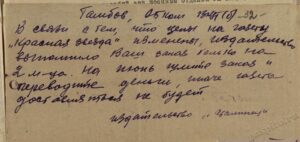 Тамбов, обком ВКП(б)
В связи с тем, что цены на газету
"Красная звезда" изменены, издательство
выполнило Ваш заказ только на
2 м-ца. На июнь шлите заказ и
переводите деньги, иначе газета
доставляться не будет
издательство